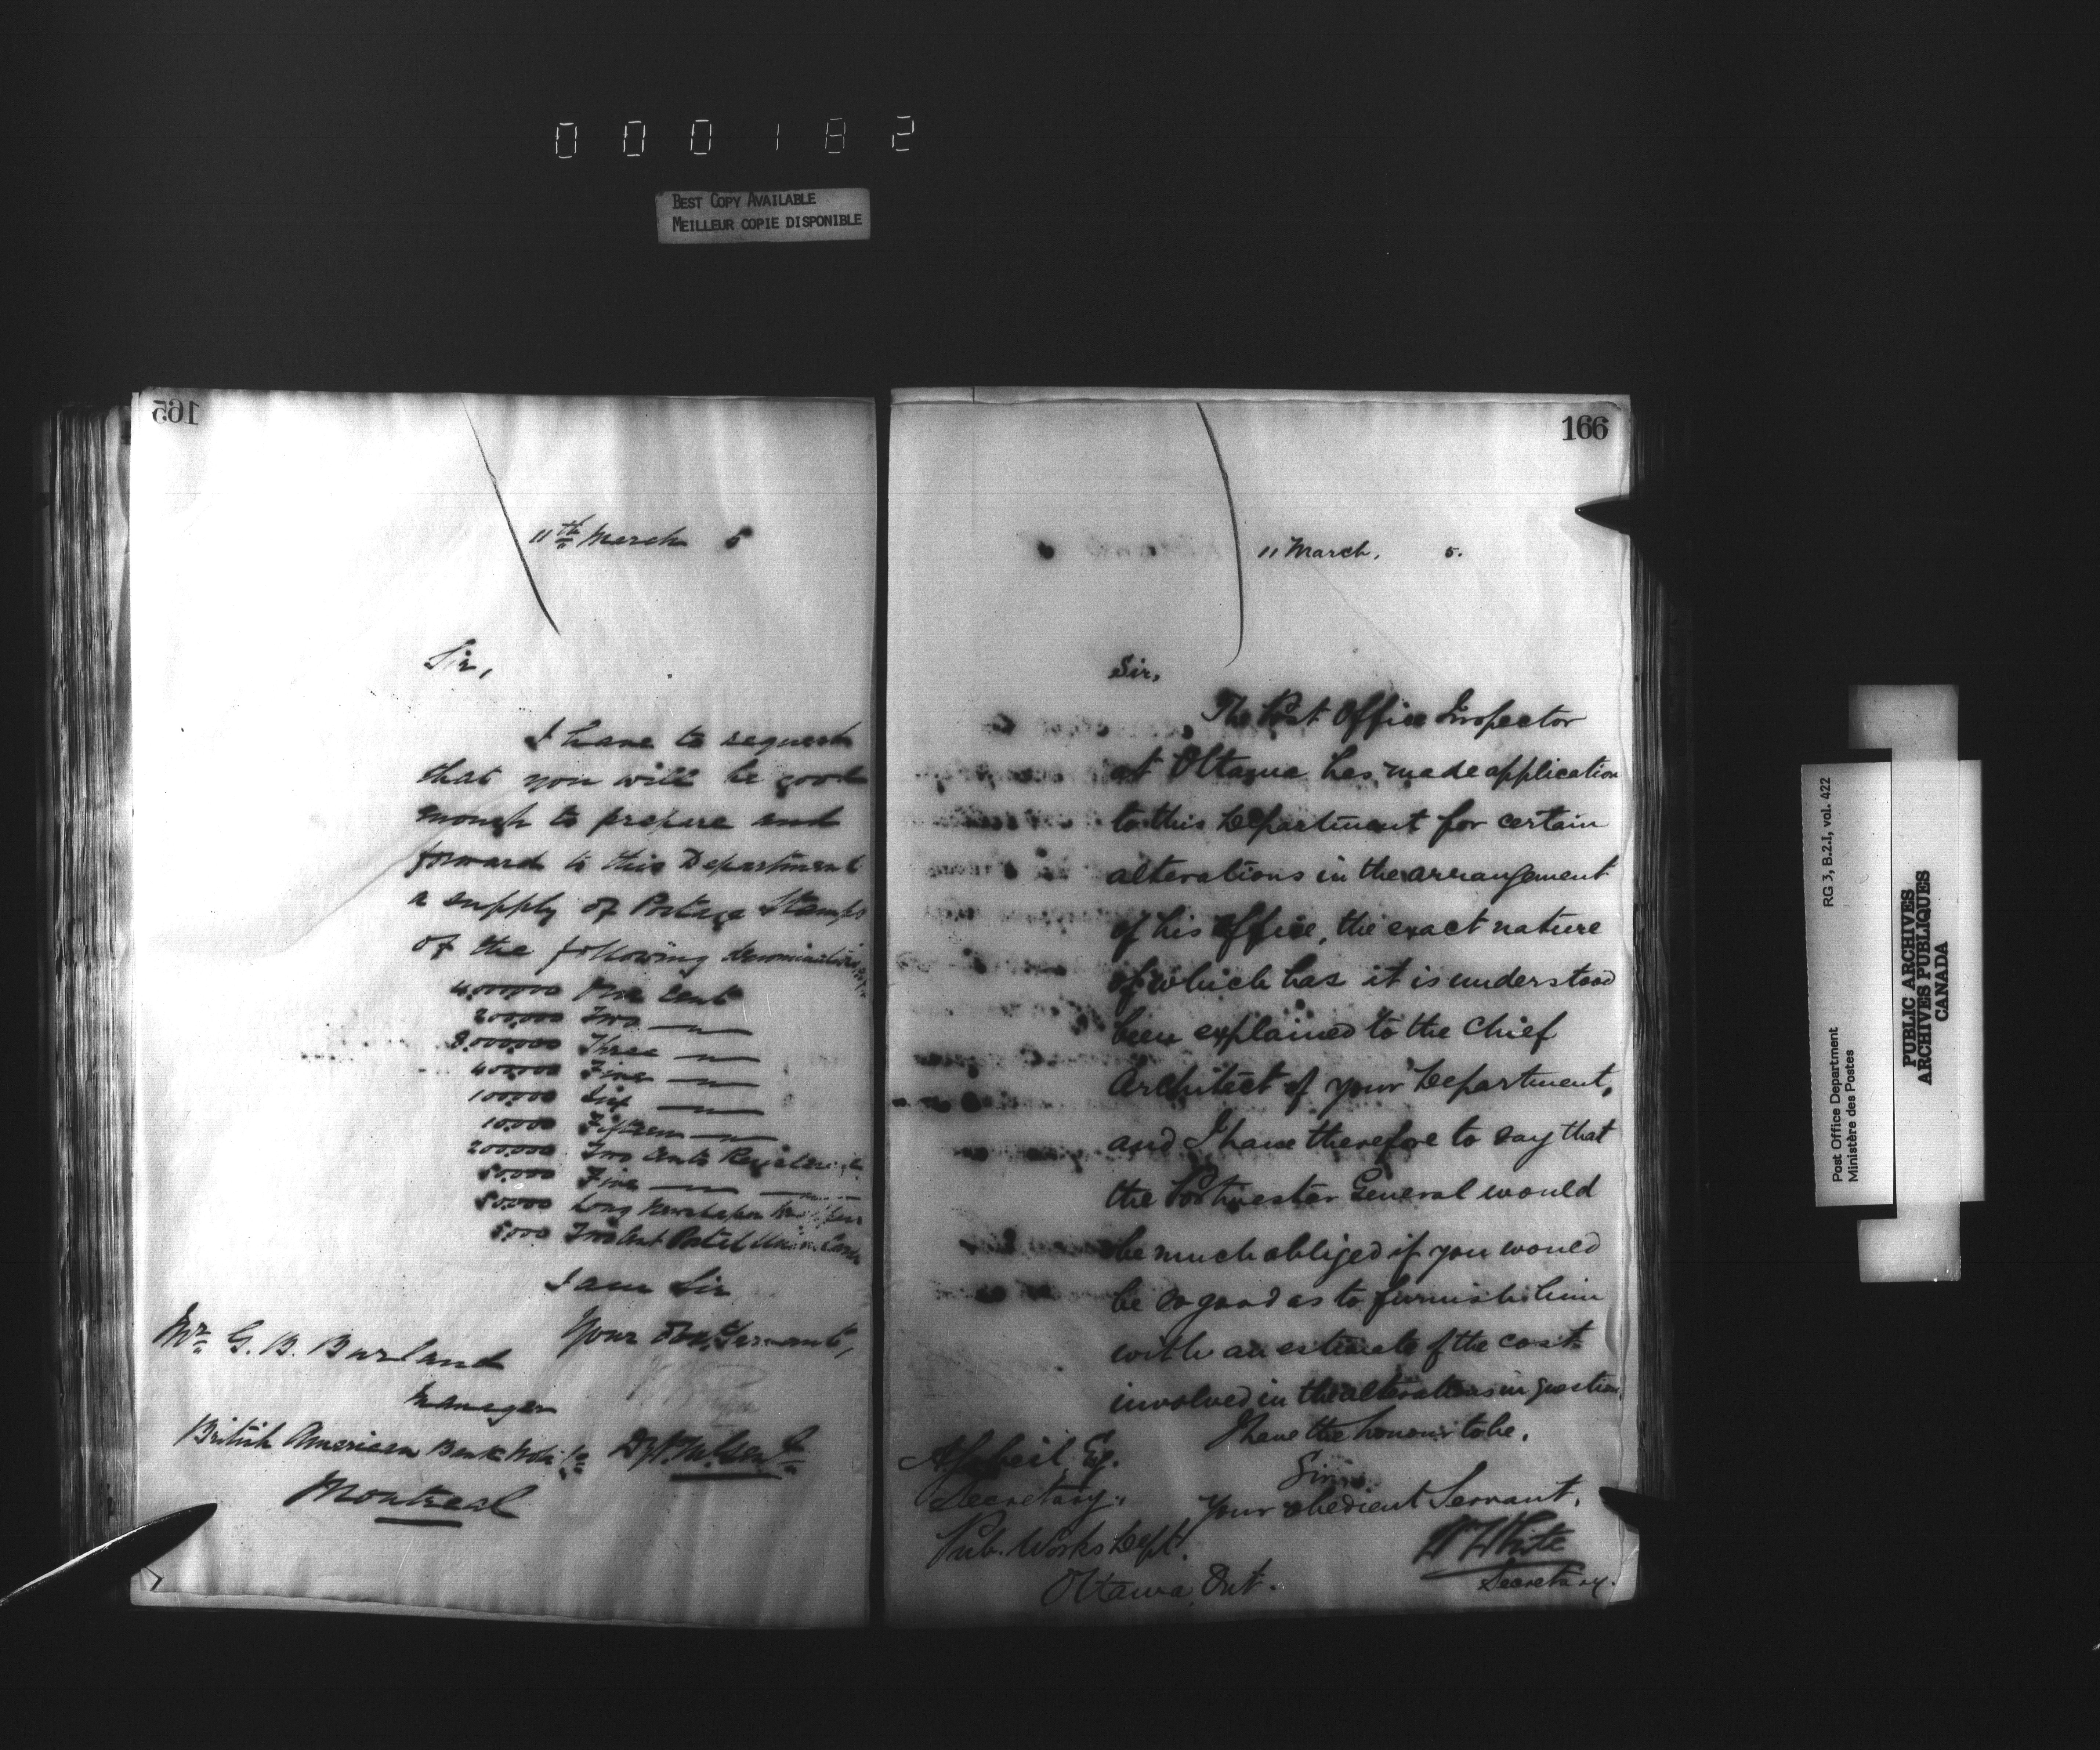 000182
BEST COPY AVAILABLE
MEILLEUR COPIE DISPONIBLE
165
11th March 5
Sir,
I have to request
that you will be good
enough to prepare and
forward to this Department
a supply of Postage Stamps
of the following denominations
4,000,000 One Cent
200,000 Two —"—
3,000,000 Three —"—
400,000 Five —"—
100,000 Six —"—
10,000 Fifteen —"—
200,000 Two Cents
50,000 Five —"— —"—
50,000 Long Newspaper
5,000 Two Cent Postal Union Cards
I am Sir
Your Obt. Servant,
Mr. G. B. Burland
Manager
British American Bank Note Co
Montreal
166
11 March, 5.
Sir,
The Post Office Inspector
at Ottawa has made application
to this Department for certain
alterations in the arrangement
of his office, the exact nature
of which has it is understood
been explained to the Chief
Architect of your Department,
and I have therefore to say that
the Postmaster General would
be much obliged if you would
be so good as to furnish him
with an estimate of the cost
involved in the alterations in question.
I have the honour to be,
Sir,
Your obedient Servant,
W White
Secretary.
Esq.
Secretary,
Pub. Works Dept.
Ottawa, Ont.
Post Office Department
Ministère des Postes
RG 3, B.2.1, vol. 422
PUBLIC ARCHIVES
ARCHIVES PUBLIQUES
CANADA